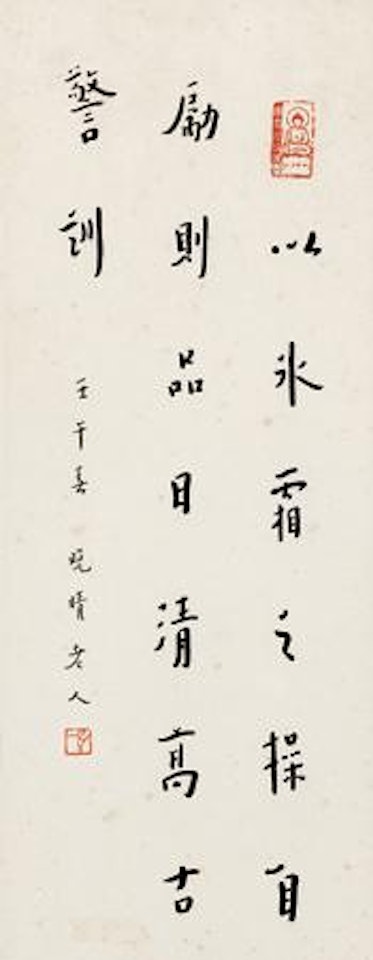 以氷霜之操自
勵則品日清高古
警訓
壬午春 晚晴老人